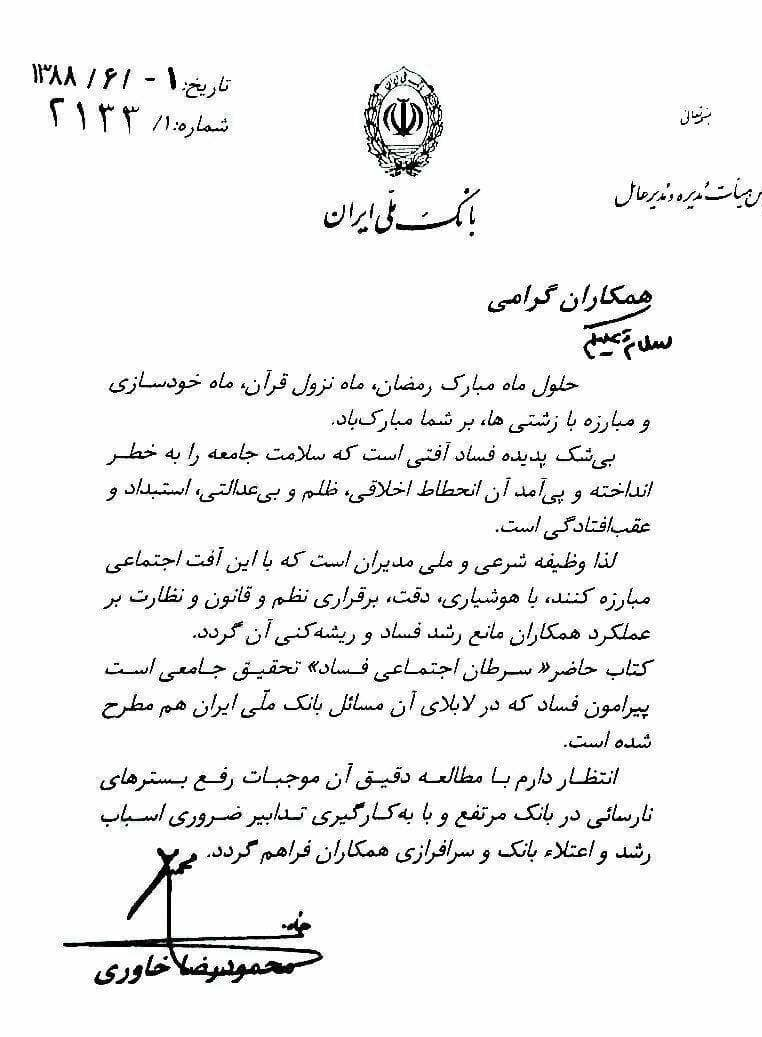 تاریخ: ۱-/۶/۱۳۸۸
شماره: ۱/۲۱۳۳
بسمه‌تعالی
بانک ملی ایران
هیأت مدیره و مدیرعامل
بانک ملّی ایران
همکاران گرامی
سلام علیکم
حلول ماه مبارک رمضان، ماه نزول قرآن، ماه خودسازی
و مبارزه با زشتی ها، بر شما مبارک‌باد.
بی‌شک پدیده فساد آفتی است که سلامت جامعه را به خطر
انداخته و پی‌آمد آن انحطاط اخلاقی، ظلم و بی‌عدالتی، استبداد و
عقب‌افتادگی است.
لذا وظیفه شرعی و ملی مدیران است که با این آفت اجتماعی
مبارزه کنند، با هوشیاری، دقت، برقراری نظم و قانون و نظارت بر
عملکرد همکاران مانع رشد فساد و ریشه‌کنی آن گردد.
کتاب حاضر« سرطان اجتماعی فساد» تحقیق جامعی است
پیرامون فساد که در لابلای آن مسائل بانک ملّی ایران هم مطرح
شده است.
انتظار دارم با مطالعه دقیق آن موجبات رفع بسترهای
نارسائی در بانک مرتفع و با به‌کارگیری تدابیر ضروری اسباب
رشد و اعتلاء بانک و سرافرازی همکاران فراهم گردد.
محمودرضا خاوری